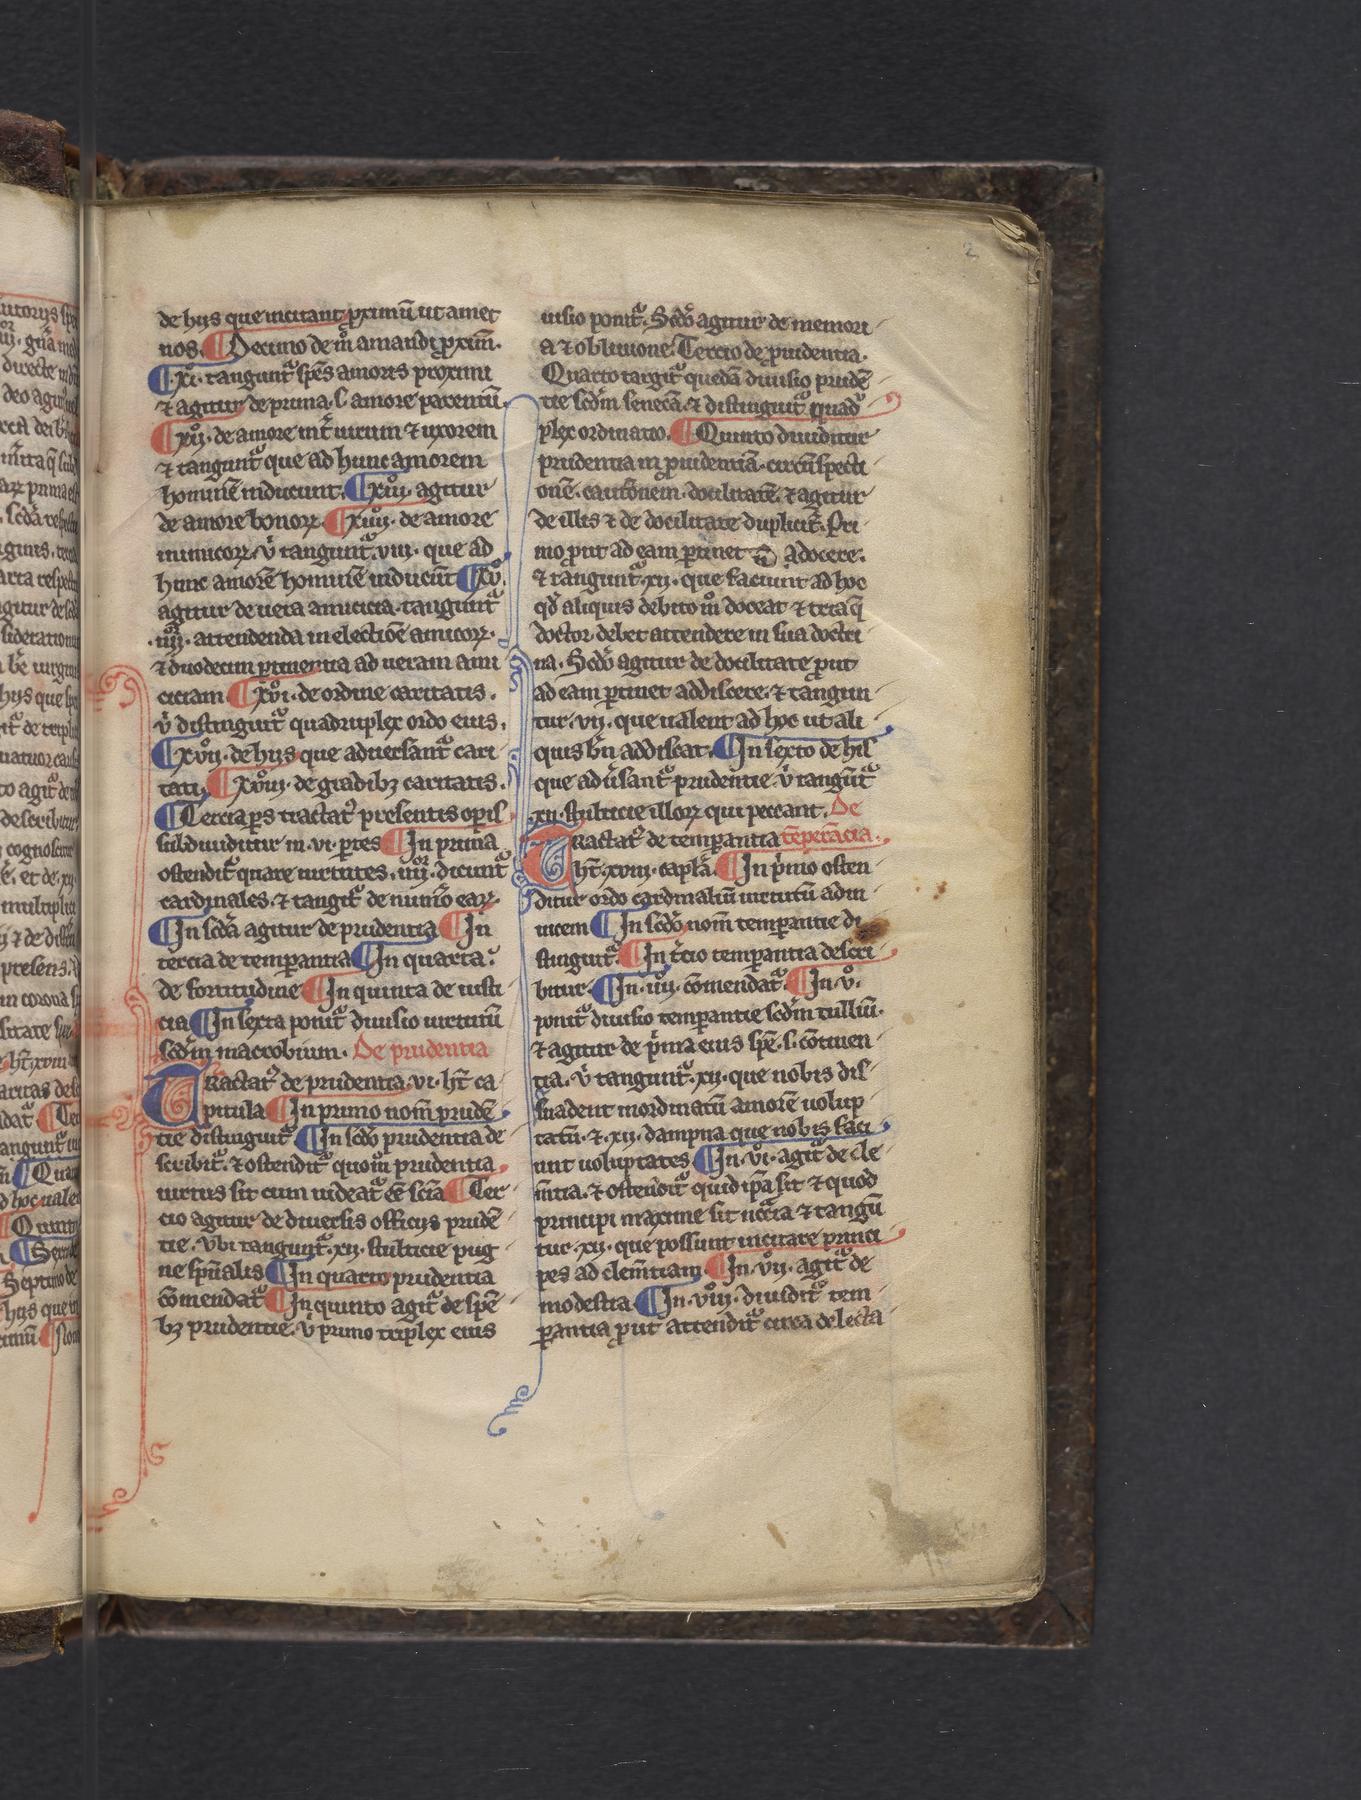 2
de hijs que incitant proximū ut amet
nos. ¶ Decimo de m̊ amandi proxim̄.
¶ .xi. tangunt͛ sp̄es amoris proximi
⁊ agitur de prima .s. amore parentū.
¶ xij. de amore int̄ uirum ⁊ uxorem
⁊ tangunt͛ que ad hunc amorem
hominē inducunt. ¶ xiij. agitur
de amore bonoꝝ. ¶ xiiij. de amore
inimicoꝝ. v̄ tangunt͛ .viii. que ad
hunc amorē hominē inducūt ¶ xv̊.
agitur de uera amicicia. tangunt͛
.iiij. attendenda in electiōe amicoꝝ.
⁊ duodecim ꝑtinentia ad ueram ami
ciciam ¶ xv̊i. de ordine caritatis.
v̄ distinguit͛ quadruplex ordo eius.
¶ xvij. de hijs que aduersant͛ cari
tati. ¶ xviij. de gradibꝫ caritatis.
¶ Tercia ꝑs tractatꝰ presentis operis
subdiuiditur in .vi. ꝑtes ¶ In prima
ostendit͛ quare uirtutes .iiij. dicunt͛
cardinales. ⁊ tangit͛ de num̄o eaꝝ.
¶ In sc̄da agitur de prudentia ¶ In
tercia de temꝑantia ¶ In quarta
de fortitudine ¶ In quinta de iusti
cia ¶ In sexta ponit͛ diuisio uirtutū
scd̄m macrobium. De prudentia
TRactatꝰ de prudentia .vi. ht̄ ca
pitula ¶ In primo nom̄ prudē
tie distinguit͛ ¶ In scd̊o prudentia de
scribit͛. ⁊ ostendit͛ quom̊ prudentia
uirtus sit cum uideat͛ eē sc̄ia ¶ Ter
cio agitur de diuersis officijs prudē
tie. Vbi tangunt͛ .xij. stulticie pug
ne sp̄ualis ¶ In quarto prudentia
cōmendat͛ ¶ In quinto agit͛ de spē
bꝫ prudentie. v̄ primo triplex eius
uisio ponit͛. Scd̊o agitur de memori
a ⁊ obliuione. Tercio de prouidentia.
Quarto tangit͛ quedā diuisio prudē
tie scd̄m senecā. ⁊ distinguit͛ quadr͛
plex ordinatio. ¶ Quinto diuiditur
prudentia in prouidentiā. circūspecti
onē. cautionem. docilitatē. ⁊ agitur
de illis ⁊ de docilitate duplicit͛. Pri
mo prout ad eam ꝑtinet docere.
⁊ tangunt͛ .xij. que faciunt ad hoc
qd̄ aliquis debito m̊ doceat ⁊ tria q̄
doctor debet attendere in sua doctri
na. Scd̊o agitur de docilitate prout
ad eam ꝑtinet addiscere. ⁊ tangun
tur .vij. que ualent ad hoc ut ali
quis bn̄ addiscat. ¶ In sexto de his
que adu͛sant͛ prudentie. v̄ tangūt͛
.xij. stulticie illoꝝ qui peccant. De
TRactatꝰ de temꝑantia tēperācia.
ht̄ .xviij. capl̄a. ¶ In p̄mo osten
ditur ordo cardinaliū uirtutū adin
uicem ¶ In scd̊o nom̄ temꝑantie di
stinguit͛. ¶ In t͛cio temꝑantia descri
bitur. ¶ In .iiij. cōmendat͛. ¶ In .v̊.
ponit͛ diuisio temꝑantie scd̄m tulliū.
⁊ agitur de p̄ma eius spē .s. cōtinen
tia. v̄ tangunt͛ .xij. que nobis dis
suadent inordinatū amorē uolup
tatū. ⁊ .xij. dampna que nobis faci
unt uoluptates ¶ In .vi. agit͛ de cle
m̄tia. ⁊ ostendit͛ quid ip̄a sit ⁊ quod
principi maxime sit nc̄c̄ia ⁊ tangū
tur .xij. que possunt incitare princi
pes ad clem̄tiam ¶ In .vij. agit͛ de
modestia ¶ In .viij. diuidit͛ tem
ꝑantia prout attendit͛ circa delecta